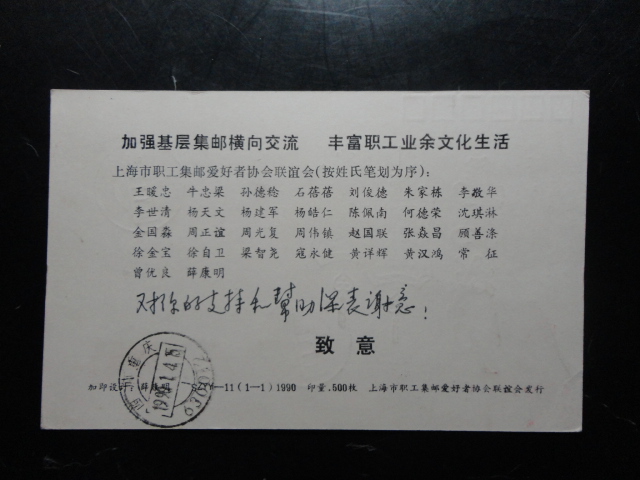 加强基层集邮横向交流　丰富职工业余文化生活
上海市职工集邮爱好者协会联谊会(按姓氏笔划为序):
王暖忠 牛忠梁 孙德稔 石蓓蓓 刘俊德 朱家栋 李敬华
李世清 杨天文 杨建军 杨皓仁 陈佩南 何德荣 沈琪淋
金国淼 周正谊 周光复 周伟镇 赵国联 张猋昌 顾善涤
徐金宝 徐自卫 梁智尧 寇永健 黄祥辉 黄汉鸿 常 征
曾优良 薛康明
对你的支持和帮助深表谢意!
致 意
加印设计: 6—11(1—1)1990 印量.500枚 上海市职工集邮爱好者协会联谊会发行
重庆